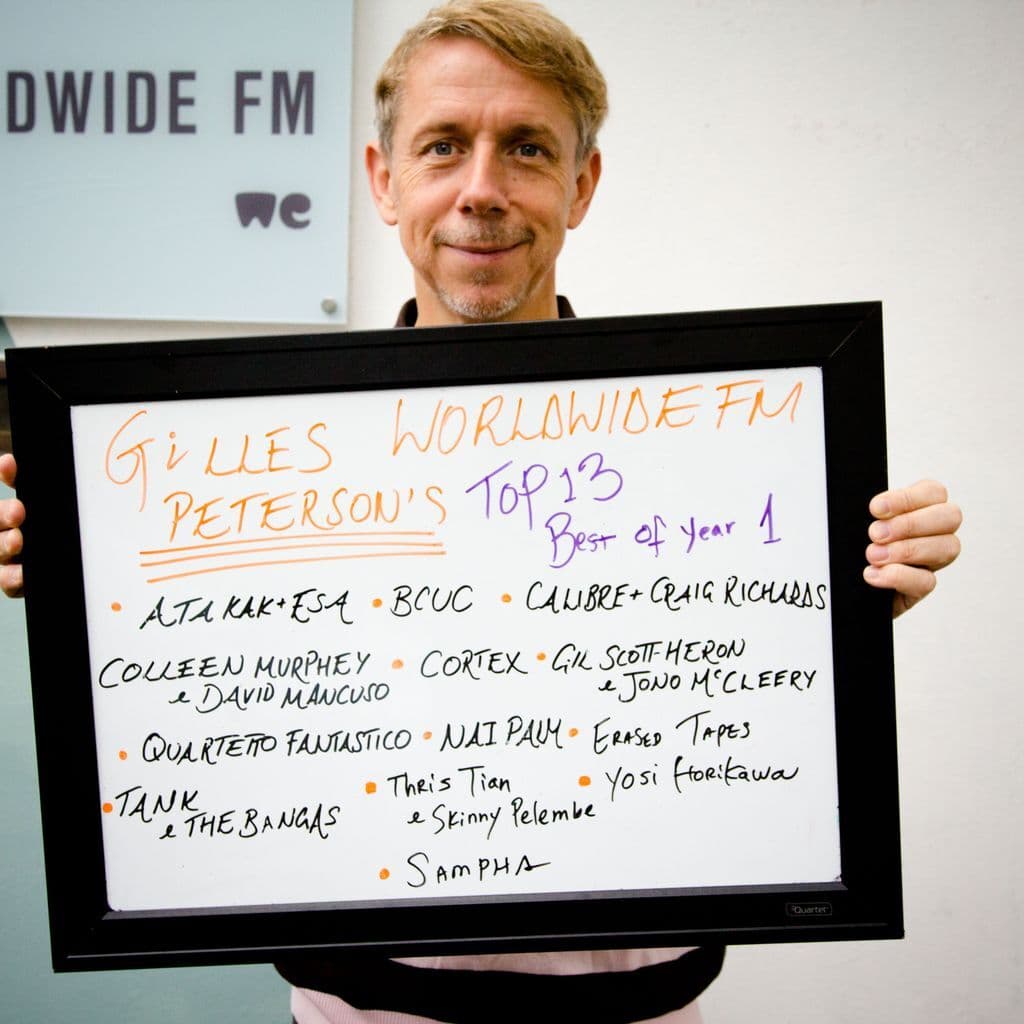 DWIDE FM
we
GiLLES WORLDWIDE FM
PETERSON'S TOP 13
Best of Year 1
• ATA KAK + ESA • BCUC • CALIBRE + CRAIG RICHARDS
COLLEEN MURPHEY • CORTEX • GIL SCOTT-HERON
e DAVID MANCUSO e JONO McCLEERY
• QUARTETTO FANTASTICO • NAI PALM • ERASED TAPES
• TANK • Thris Tian • Yosi Horikawa
e THE BANGAS e Skinny Pelembe
• SAMPHA
Quartet